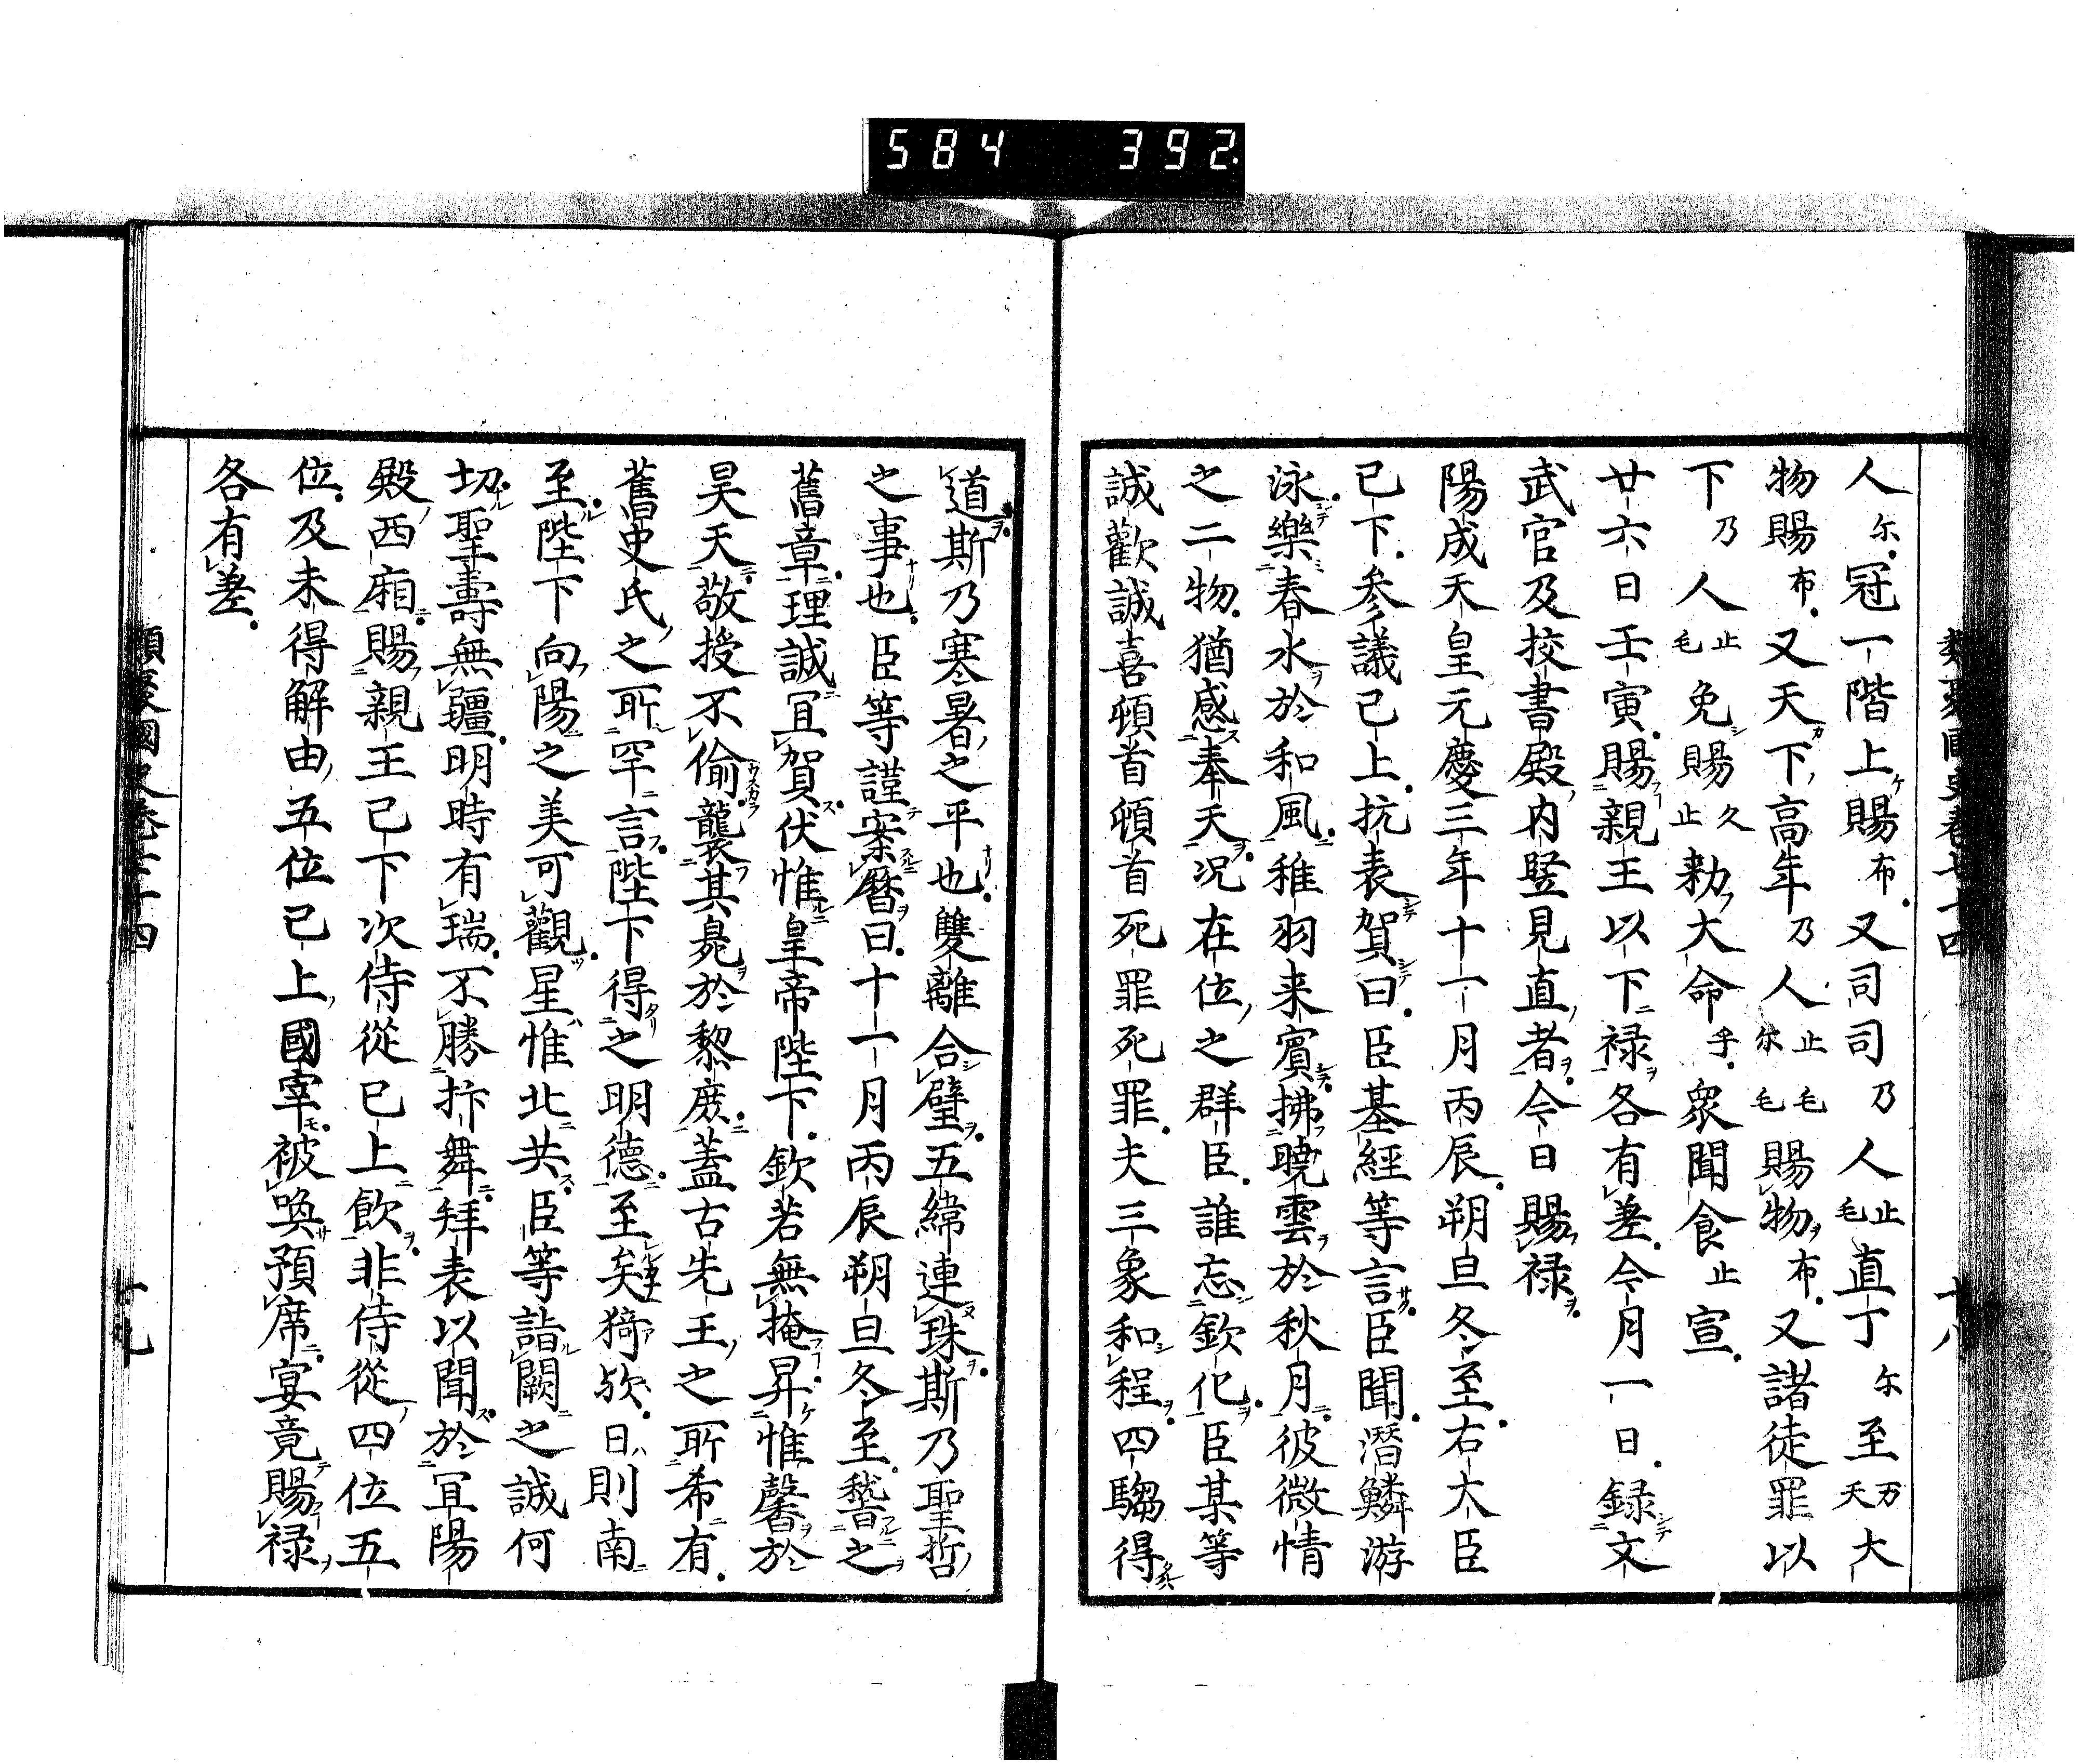 584 392
類聚國史卷七十四 十八
人尓冠一階上賜布又司司乃人止毛直丁尓至万天大
物賜布又天下高年乃人止毛尓毛賜物布又諸徒罪以
下乃人止毛免賜久止勅大命乎衆聞食止宣
廿六日壬寅賜親王以下禄各有差今月一日録文
武官及挍書殿内竪見直者今日賜禄
陽成天皇元慶三年十一月丙辰朔旦冬至右大臣
已下参議已上抗表賀曰臣基經等言臣聞潛鱗游
泳樂春水於和風稚羽来賓拂曉雲於秋月彼微情
之二物猶感奉天况在位之群臣誰忘欽化臣某等
誠歡誠喜頓首頓首死罪死罪夫三象和程四騶得
道斯乃寒暑之平也雙離合璧五緯連珠斯乃聖哲
之事也臣等謹案暦曰十一月丙辰朔旦冬至稽之
舊章理誠冝賀伏惟皇帝陛下欽若無掩昇惟馨於
昊天敬授不偷襲其鳧於黎庶蓋古先王之所希有
舊史氏之所罕言陛下得之明德至矣猗欤日則南
至陛下向陽之美可觀星惟北共臣等詣闕之誠何
切聖壽無疆明時有瑞不勝抃舞拜表以聞於冝陽
殿西廂賜親王已下次侍從已上飲非侍從四位五
位及未得解由五位已上國宰被喚預席宴竟賜禄
各有差
類聚國史卷七十四 十九